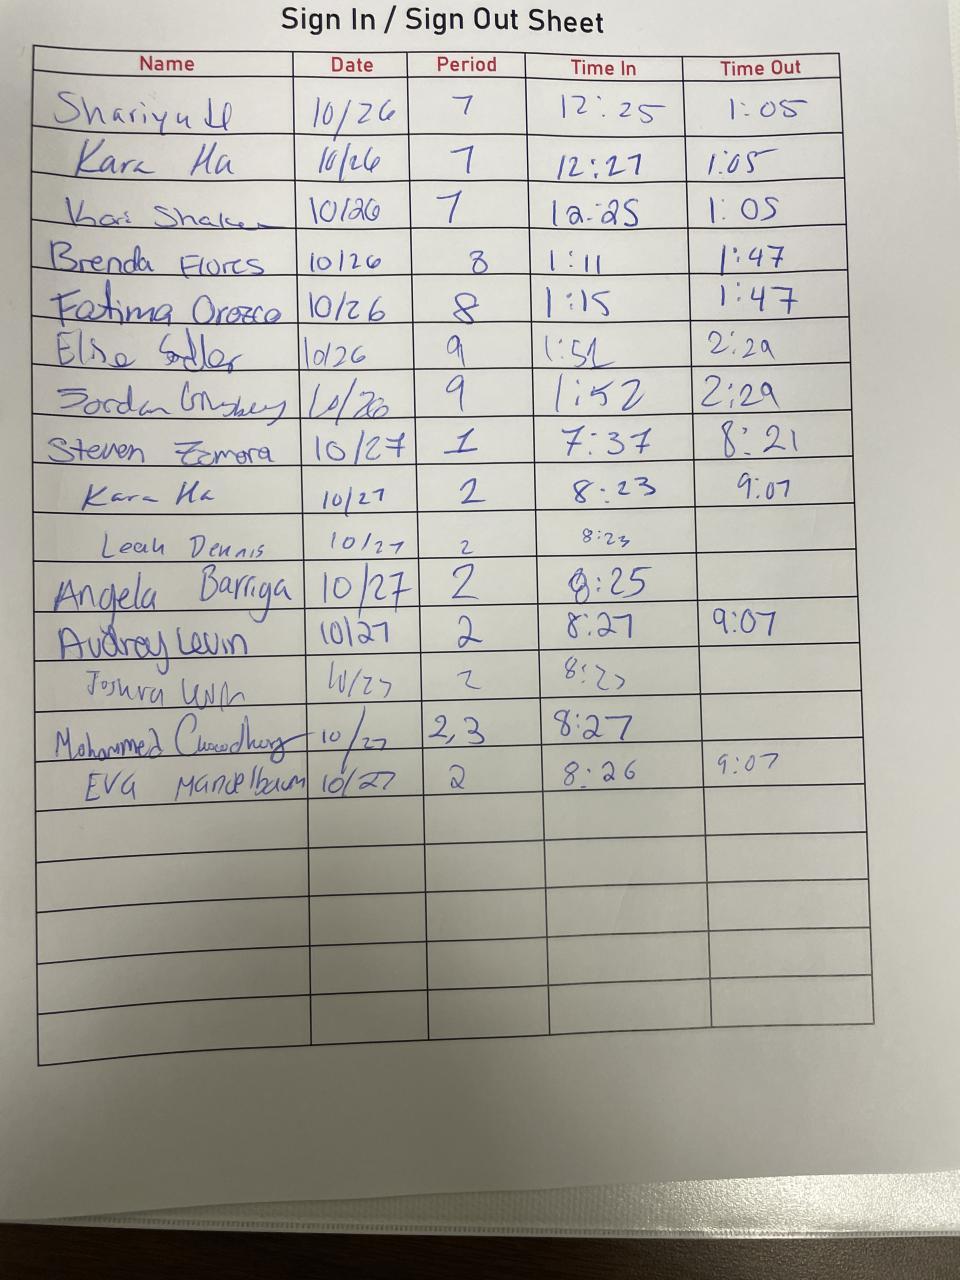 Sign In / Sign Out Sheet
Name Date Period Time In Time Out
10/26 7 12:25 1:05
Kara Ha 10/26 7 12:27 1:05
10/26 7 12:25 1:05
Brenda Flores 10/26 8 1:11 1:47
Fatima Orozco 10/26 8 1:15 1:47
Elise 10/26 9 1:51 2:29
Jordan 10/26 9 1:52 2:29
Steven Zamora 10/27 1 7:37 8:21
Kara Ha 10/27 2 8:23 9:07
Leah Dennis 10/27 2 8:23
Angela Barriga 10/27 2 8:25
Audrey Levin 10/27 2 8:27 9:07
Joshua 10/27 2 8:27
Mohammed Chowdhury 10/27 2,3 8:27
Eva Mandelbaum 10/27 2 8:26 9:07